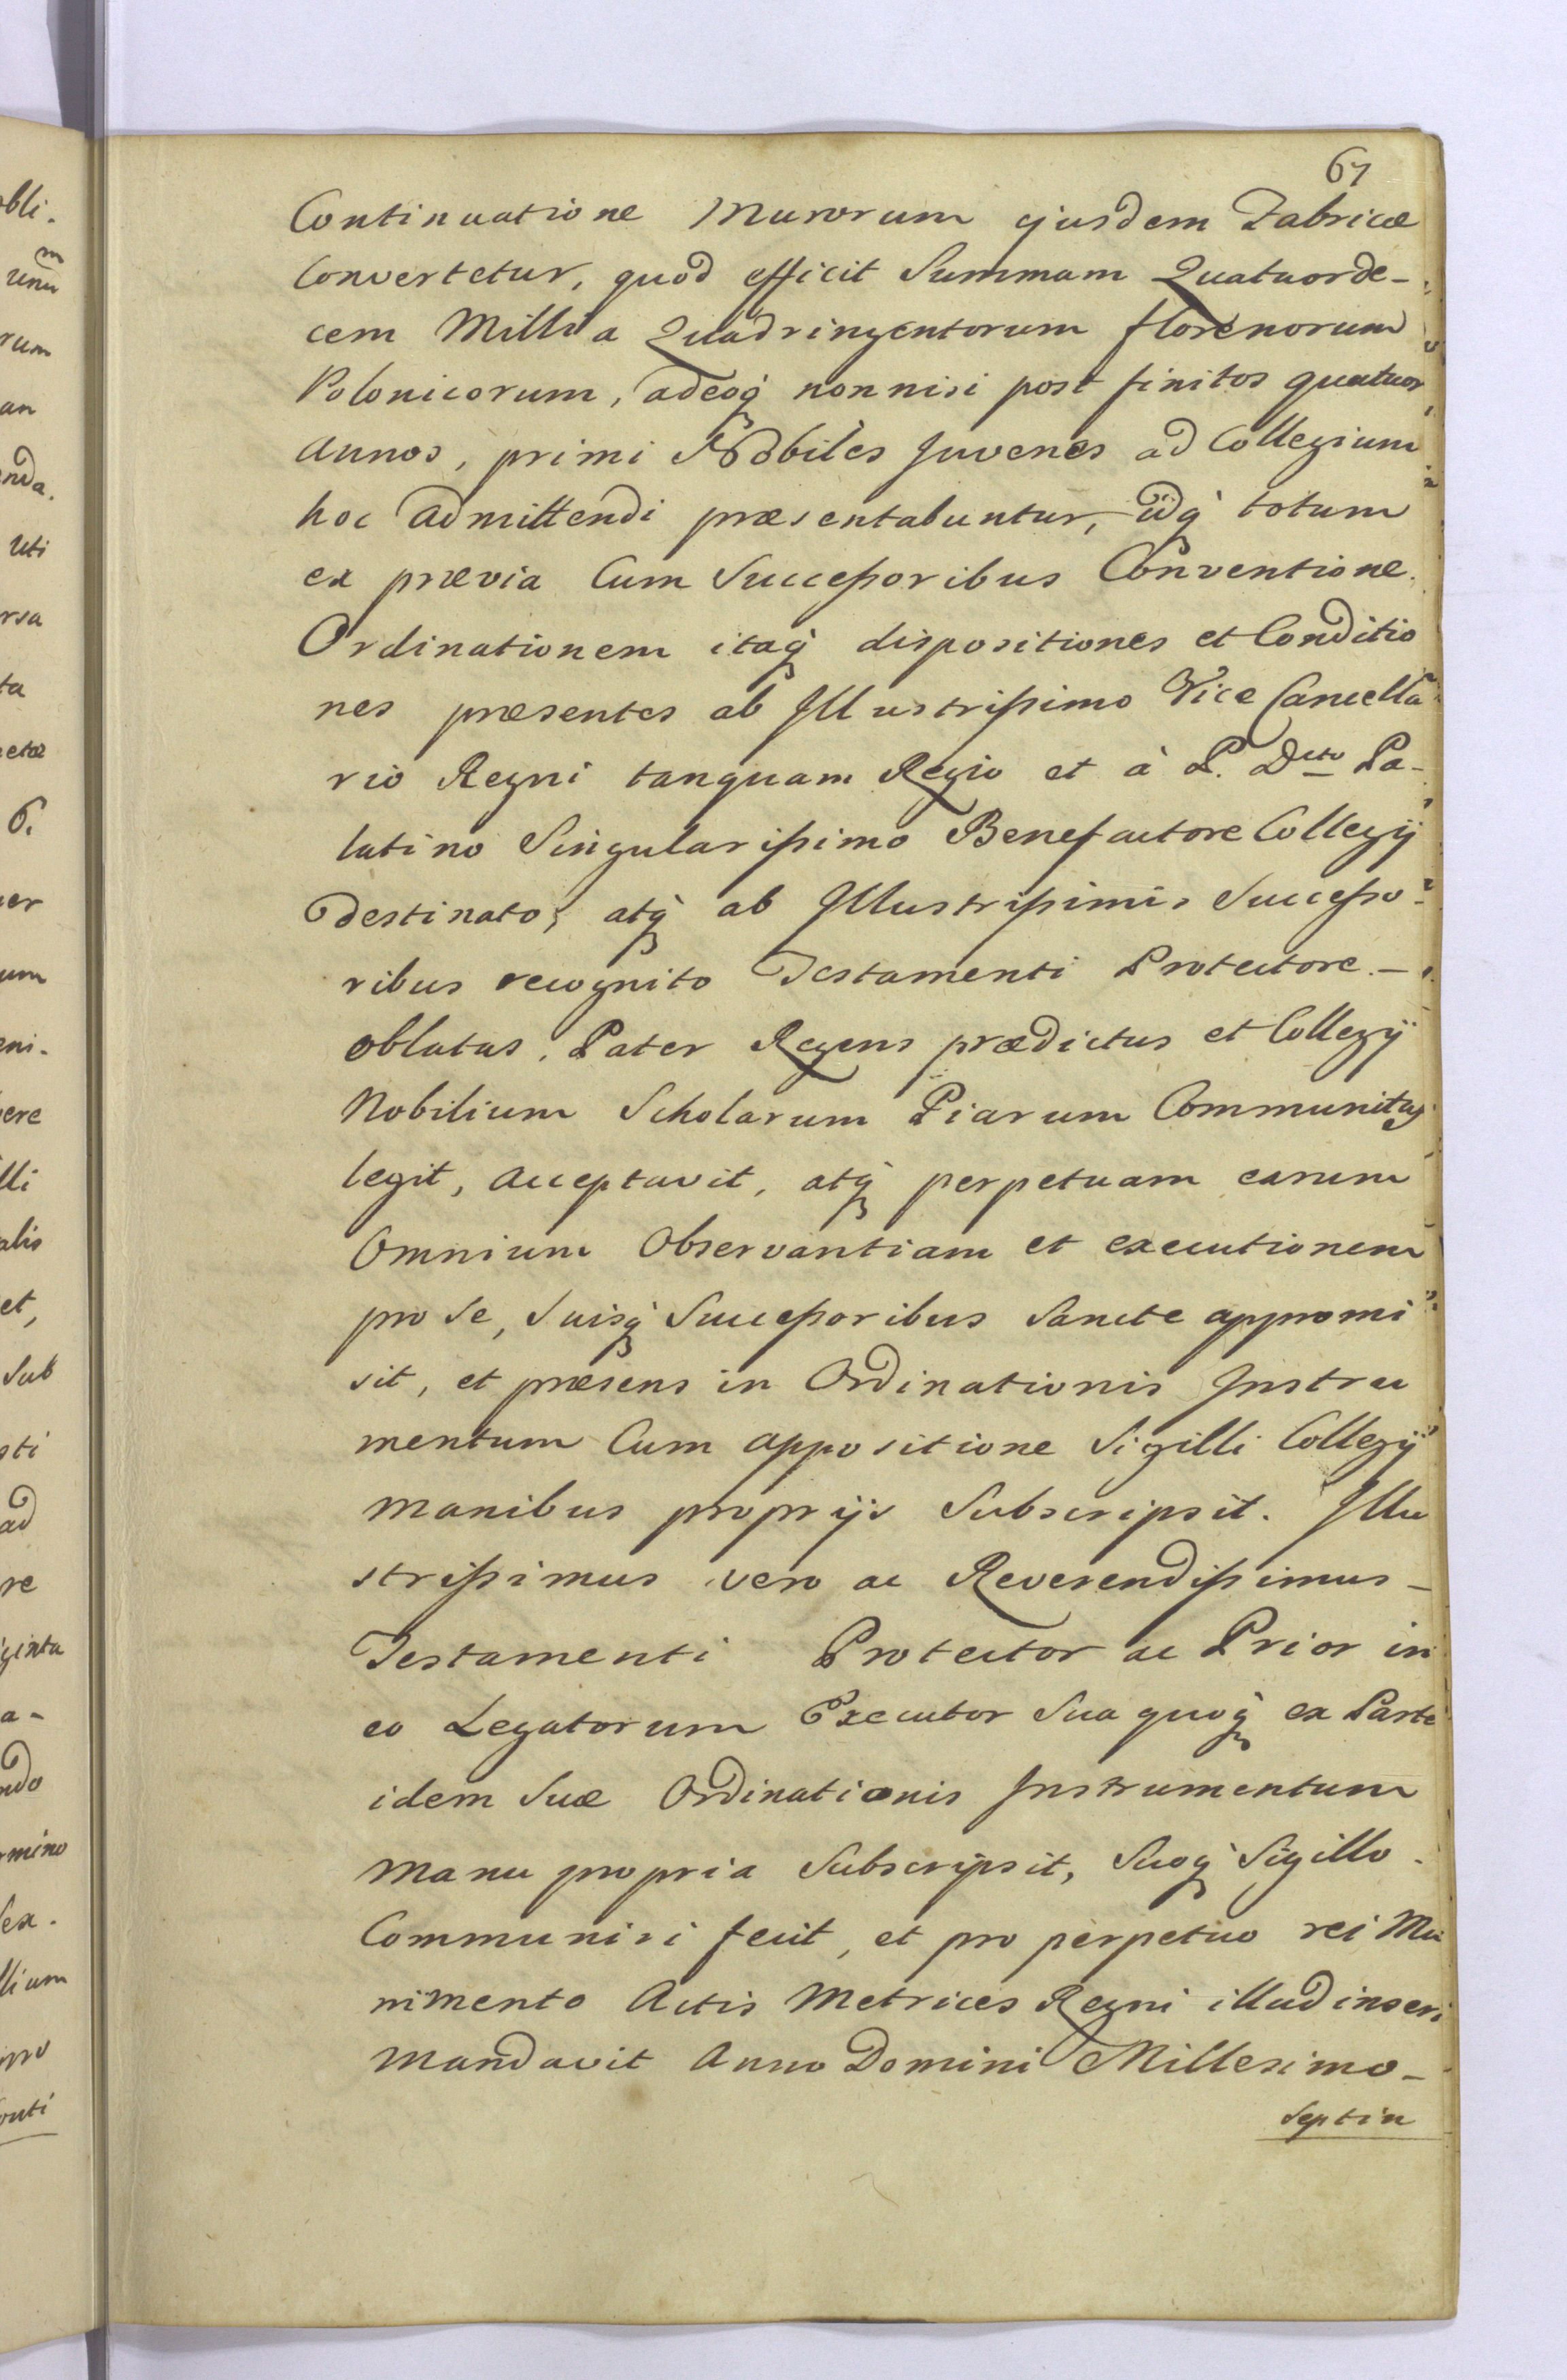 67
Continuatione Murorum ejusdem Fabricæ
Convertetur, quod efficit Summam Quatuorde-
cem Millia Quadringentorum florenorum
Polonicorum, adeoq́ nonnisi post finitos quatuor
annos, primi Nobiles Juvenes ad Collegium
hoc admittendi præsentabuntur, idq́ totum
ex prævia Cum Successoribus Conventione.
Ordinationem itaq́ dispositiones et Conditio
nes præsentes ab Illustrissimo Vice Cancella
rio Regni tanquam Regio et à P. Dcto Pa-
latino Singularissimo Benefactore Collegij
destinato, atq́ ab Illustrissimis Successo-
ribus recognito Testamenti Protectore. –
oblatas, Pater Regens prædictus et Collegij
Nobilium Scholarum Piarum Communitas
legit, acceptavit, atq́ perpetuam earum
Omnium Observantiam et executionem
pro se, Suisq́ Successoribus Sancte appromi
sit, et præsens in Ordinationis Instru
mentum Cum appositione Sigilli Collegij
manibus proprijs Subscripsit. Illu
strissimus vero ac Reverendissimus –
Testamenti Protector ac Prior in
eo Legatorum Executor Sua quoq́ ex Parte
idem Suæ Ordinationis Instrumentum
manu propria Subscripsit, Suoq́ Sigillo
Communiri fecit, et pro perpetuo rei Mu
nimento Actis Metrices Regni illud inseri
mandavit Anno Domini Millesimo –
Septin